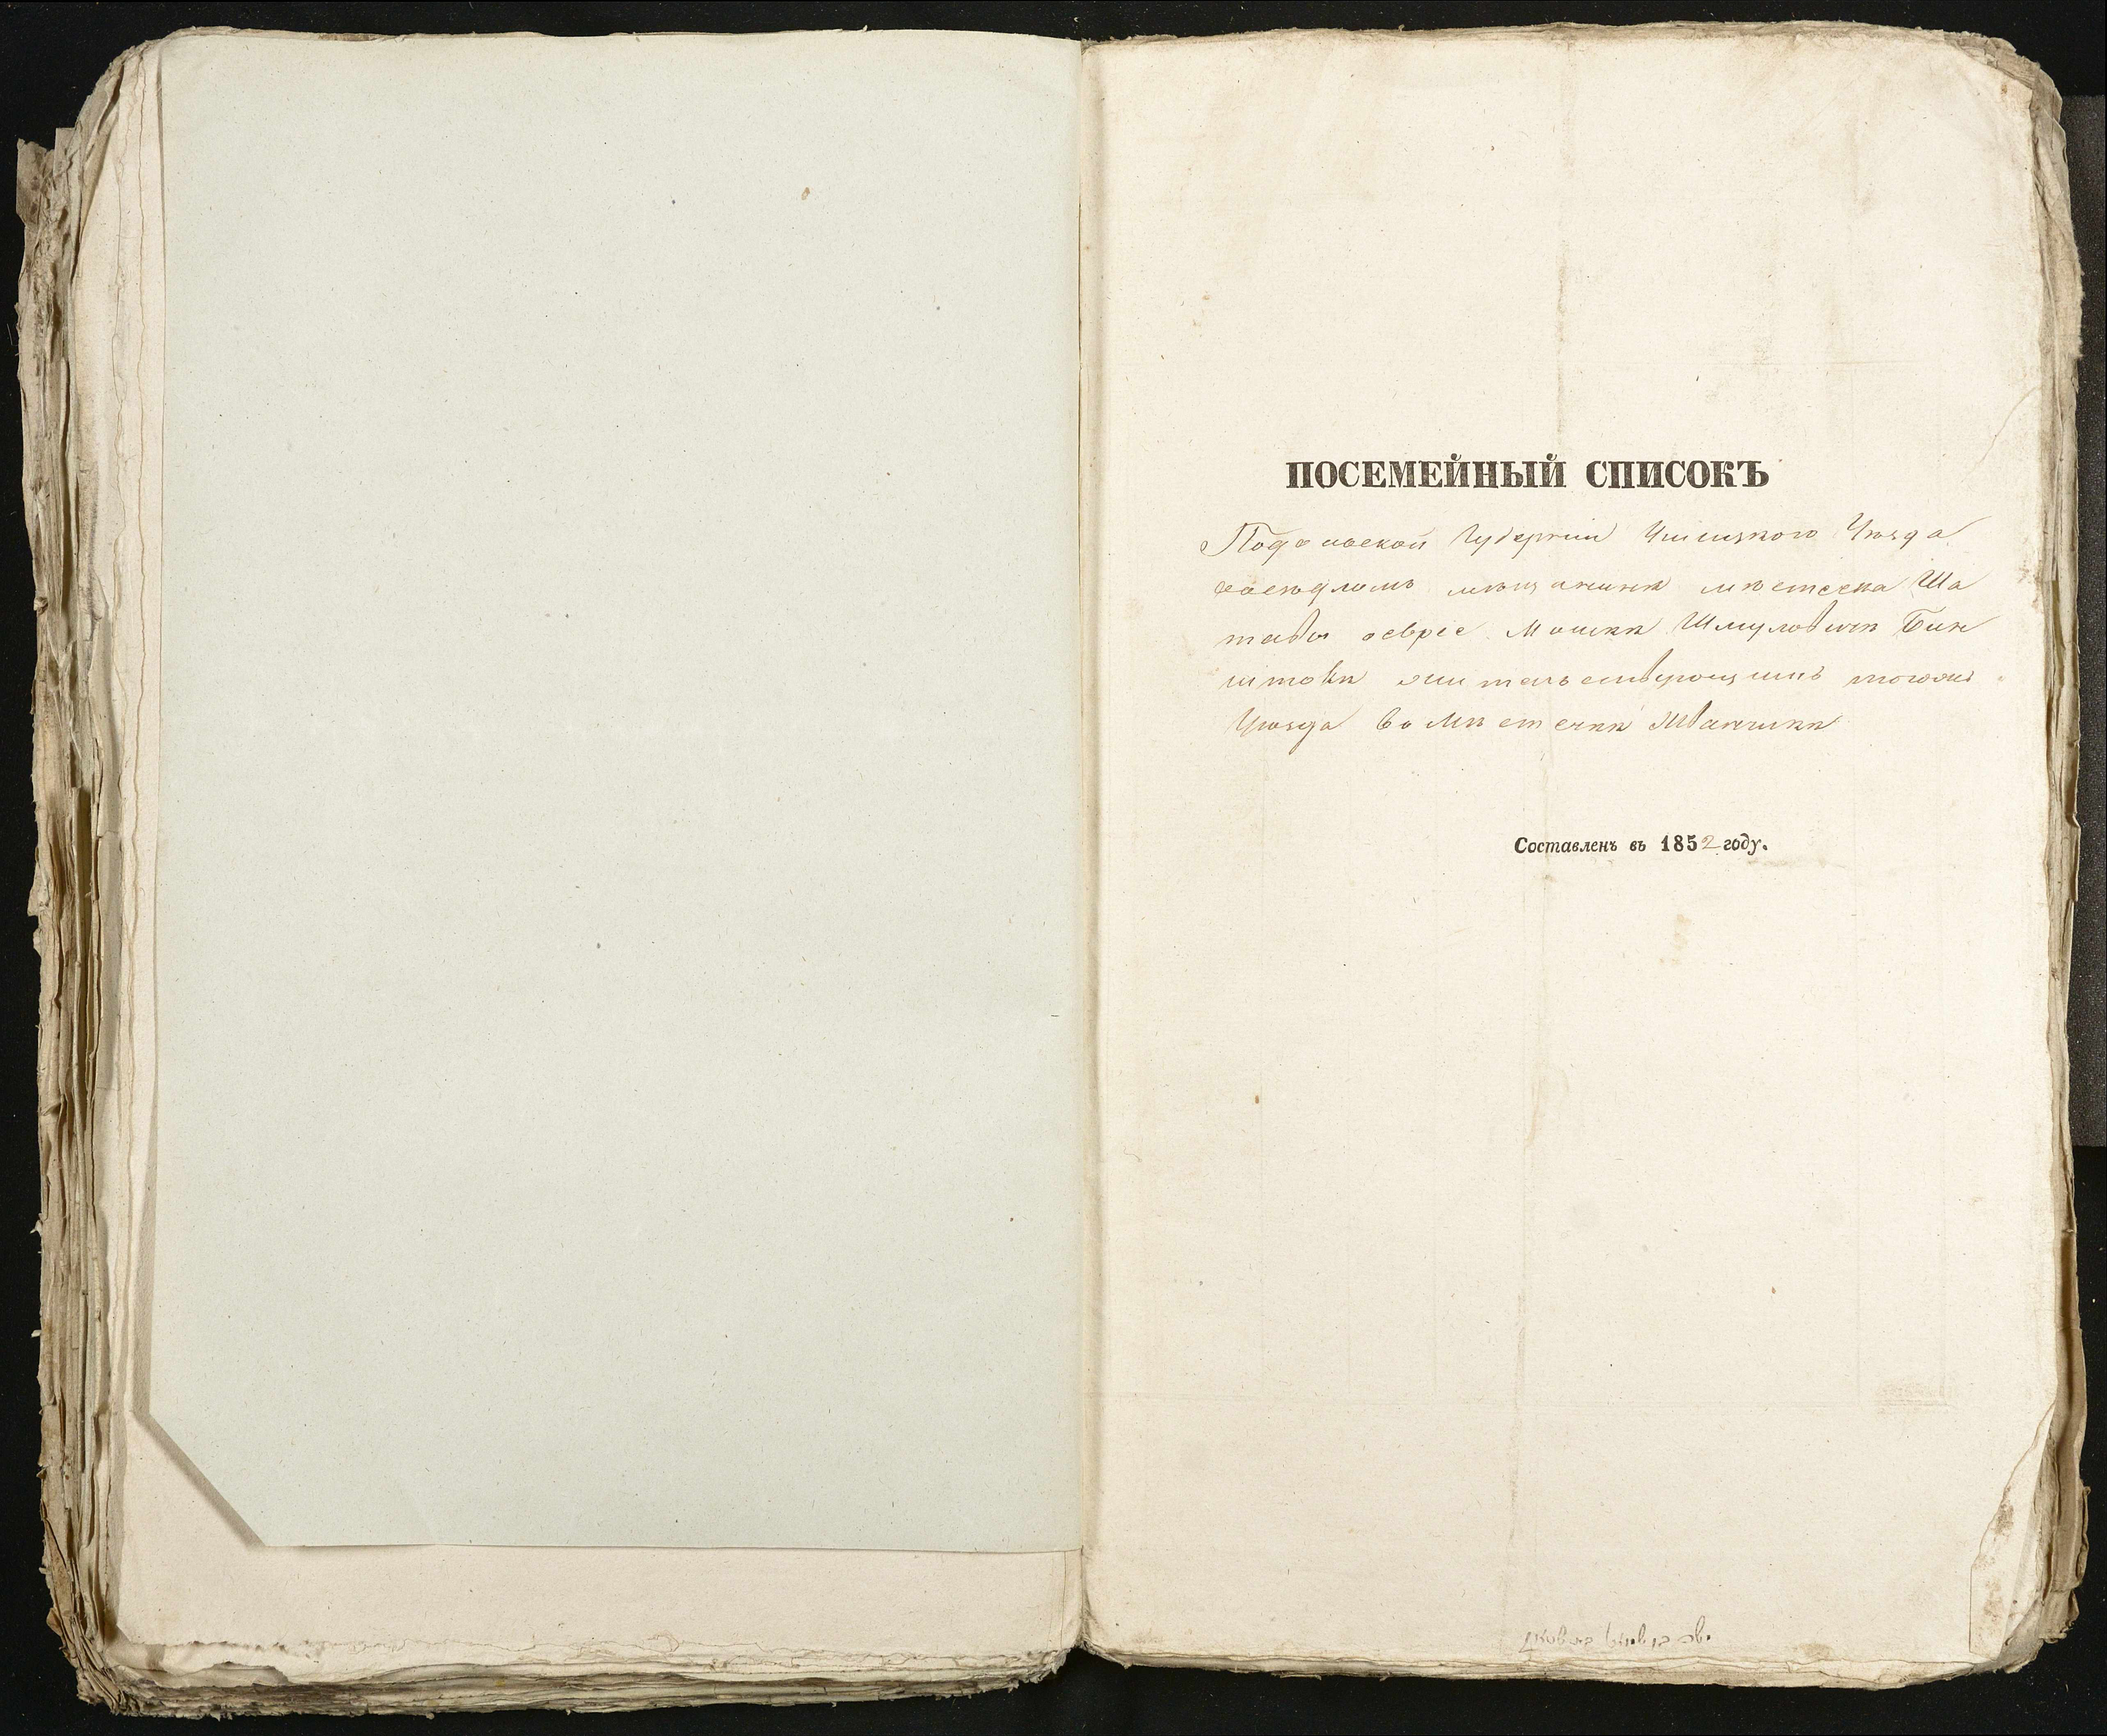 ПОСЕМЕЙНЫЙ СПИСОКЪ
Подольской Губернии Ушицкого Уѣзда
осѣдломъ мѣщанинѣ мѣстечка Ша
тавы еврее Мошкѣ Шмуловичѣ Бин
штокѣ жительствующимъ тогожъ
Уѣзда въ Мѣстечкѣ Жванчикѣ
Составленъ въ 1852 году.